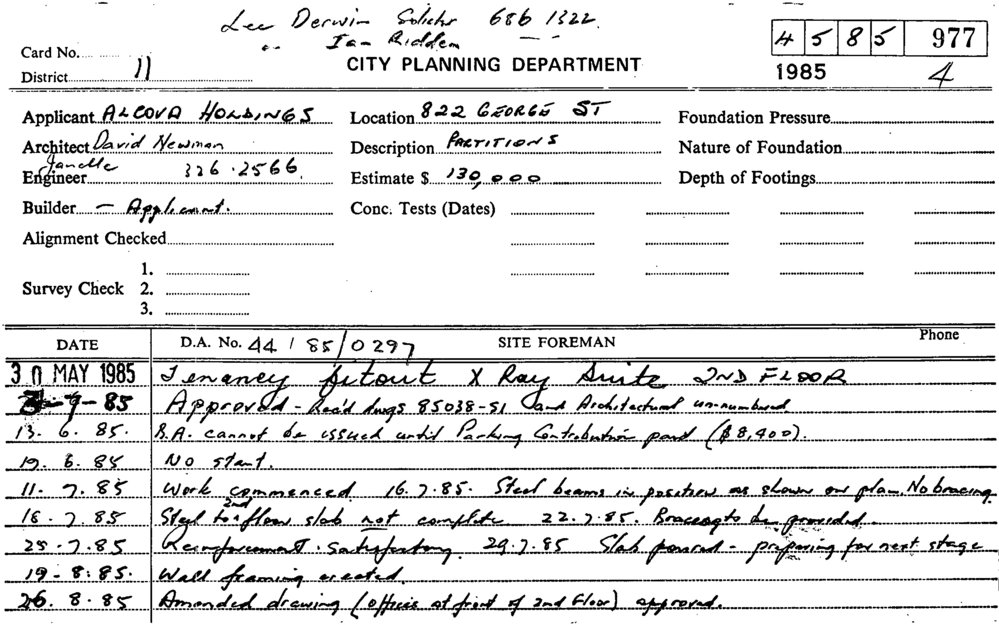 Lee Derwin Solicitor 686 1322.
" Ian Ridden
Card No.
4 5 8 5 977
CITY PLANNING DEPARTMENT
District 11
1985 4
Applicant ALCOVA HOLDINGS Location 822 GEORGE ST Foundation Pressure
Architect David Newman Description PARTITIONS Nature of Foundation
Janelle
Engineer 326.2566. Estimate $ 130,000 Depth of Footings
Builder - Applicant. Conc. Tests (Dates)
Alignment Checked
1.
Survey Check 2.
3.
DATE D.A. No. 44 / 85/0297 SITE FOREMAN Phone
30 MAY 1985 Tenancy fitout X Ray Suite 2ND FLOOR
-85 Approved - Rec'd dwgs 85038-S1 and Architectural un-numbered
13. 6. 85. B.A. cannot be issued until Parking Contribution paid ($8,400).
19. 6. 85 No start.
11. 7. 85 Work commenced. 16.7.85. Steel beams in position as shown on plan. No bracing
2nd
18. 7. 85 Steel to floor slab not complete 22.7.85. Bracing to be provided.
25.7.85 Reinforcement satisfactory 29.7.85 Slab poured - preparing for next stage
19-8.85. Wall framing erected.
26. 8. 85 Amended drawing (offices at front of 2nd floor) approved.